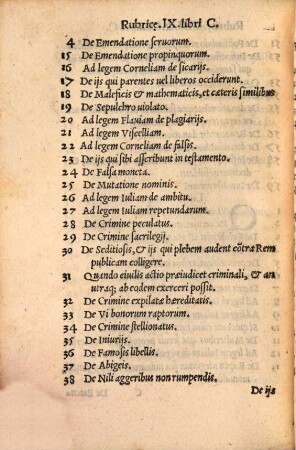 Rubricę.IX.libri C.
4 De Emendatione seruorum.
15 De Emendatione propinquorum.
16 Ad legem Corneliam de sicarijs.
17 De ijs qui parentes uel liberos occiderunt.
18 De Maleficis & mathematicis, et cæteris similibus
19 De Sepulchro uiolato.
20 Ad legem Flauiam de plagiarijs.
21 Ad legem Viscelliam.
22 Ad legem Corneliam de falsis.
23 De ijs qui sibi asscribunt in testamento.
24 De Falsa moneta.
25 De Mutatione nominis.
26 Ad legem Iuliam de ambitu.
27 Ad legem Iuliam repetundarum.
28 De Crimine peculatus.
29 De Crimine sacrilegij.
30 De Seditiosis, & ijs qui plebem audent cōtra Rem
publicam colligere.
31 Quando ciuilis actio præiudicet criminali, & an
utraq; ab eodem exerceri possit.
32 De Crimine expilatæ hæreditatis.
33 De Vi bonorum raptorum.
34 De Crimine stellionatus.
35 De Iniurijs.
36 De Famosis libellis.
37 De Abigeis.
38 De Nili aggeribus non rumpendis.
De ijs